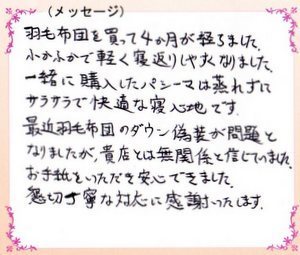 （メッセージ）
羽毛布団を買って4か月が経ちました。
ふかふかで軽く寝返りしやすくなりました。
一緒に購入したパシーマは蒸れずに
サラサラで快適な寝心地です。
最近羽毛布団のダウン偽装が問題と
なりましたが、貴店とは無関係と信じていました。
お手紙をいただき安心できました。
懇切丁寧な対応に感謝いたします。